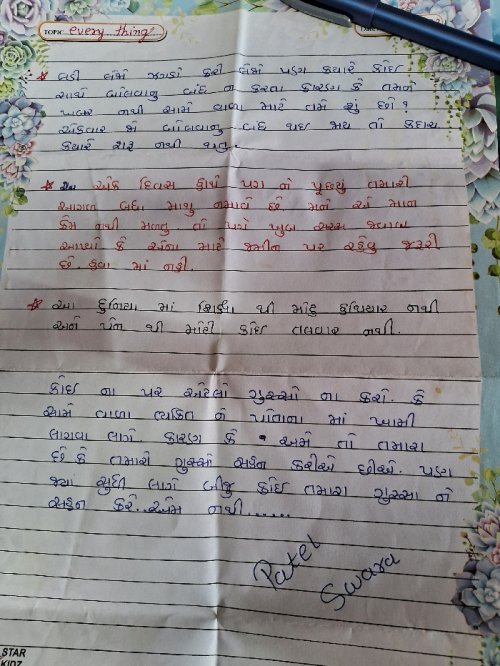 TOPIC every thing
લડી લેમાં ઝગડો કરી લેમાં પણ ક્યારે કોઇ
સાથે બોલવાનું બંધ ન કરતા કારણ કે તમને
ખબર નથી સામે વાળા માટે તમે શું છો?
એકવાર જો બોલવાનું બંધ થઇ જાય તો કદાચ
ક્યારે શરૂ નથી થતુ.
એક દિવસ કોઈ પગ ને પૂછ્યું તમારી
આગળ બધા માથુ નમાવે છે મને એ માન
કેમ નથી મળતું તો પગે ખુબ સરસ જવાબ
આપ્યો કે એના માટે જમીન પર રહેવુ જરૂરી
છે. હવા માં નહી.
આ દુનિયા માં શિક્ષા થી મોટુ હથિયાર નથી
અને પેન થી મોટી કોઇ તલવાર નથી.
કોઇ ના પર એટલો ગુસ્સો ના કરો. કે
સામે વાળા વ્યક્તિ ને પોતાના માં ખામી
લાગવા લાગે કારણ કે અમે તો તમારા
છે કે તમારો ગુસ્સો સહન કરીએ છીએ. પણ
જ્યા સુધી લાગે બીજુ કોઇ તમારા ગુસ્સા ને
સહન કરે. એમ નથી......
Patel
Swara
STAR
KIDZ